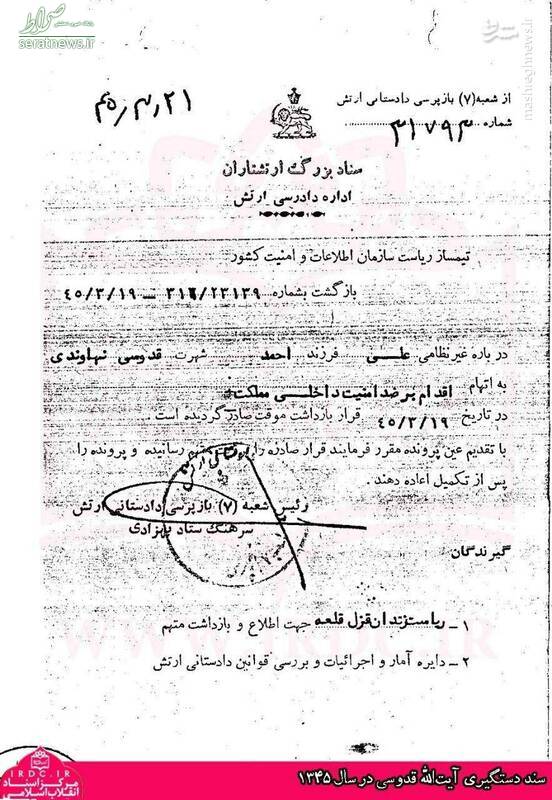 صراط
seratnews.ir
mashreghnews.ir
از شعبه (۷) بازپرسی دادستانی ارتش
شماره ۳۱۷۹۳
۴۵/۳/۲۱
ستاد بزرگ ارتشتاران
اداره دادرسی ارتش
تیمسار ریاست سازمان اطلاعات و امنیت کشور
بازگشت بشماره ۳۱۶/۲۳۱۳۹ – ۴۵/۳/۱۹
در باره غیر نظامی علی فرزند احمد شهرت قدوسی نهاوندی
به اتهام اقدام بر ضد امنیت داخلی مملکت
در تاریخ ۴۵/۳/۱۹ قرار بازداشت موقت صادر گردیده است .
با تقدیم عین پرونده مقرر فرمایند قرار صادره را متهم رسانیده و پرونده را
پس از تکمیل اعاده دهند .
رئیس شعبه (۷) بازپرسی دادستانی ارتش
سرهنگ ستاد بهزادی
گیرندگان
۱ – ریاست زندان قزل قلعه جهت اطلاع و بازداشت متهم
۲ – دایره آمار و اجرائیات و بررسی قوانین دادستانی ارتش
IRDC.IR
مرکز اسناد
انقلاب اسلامی
سند دستگیری آیت‌الله قدوسی در سال ۱۳۴۵